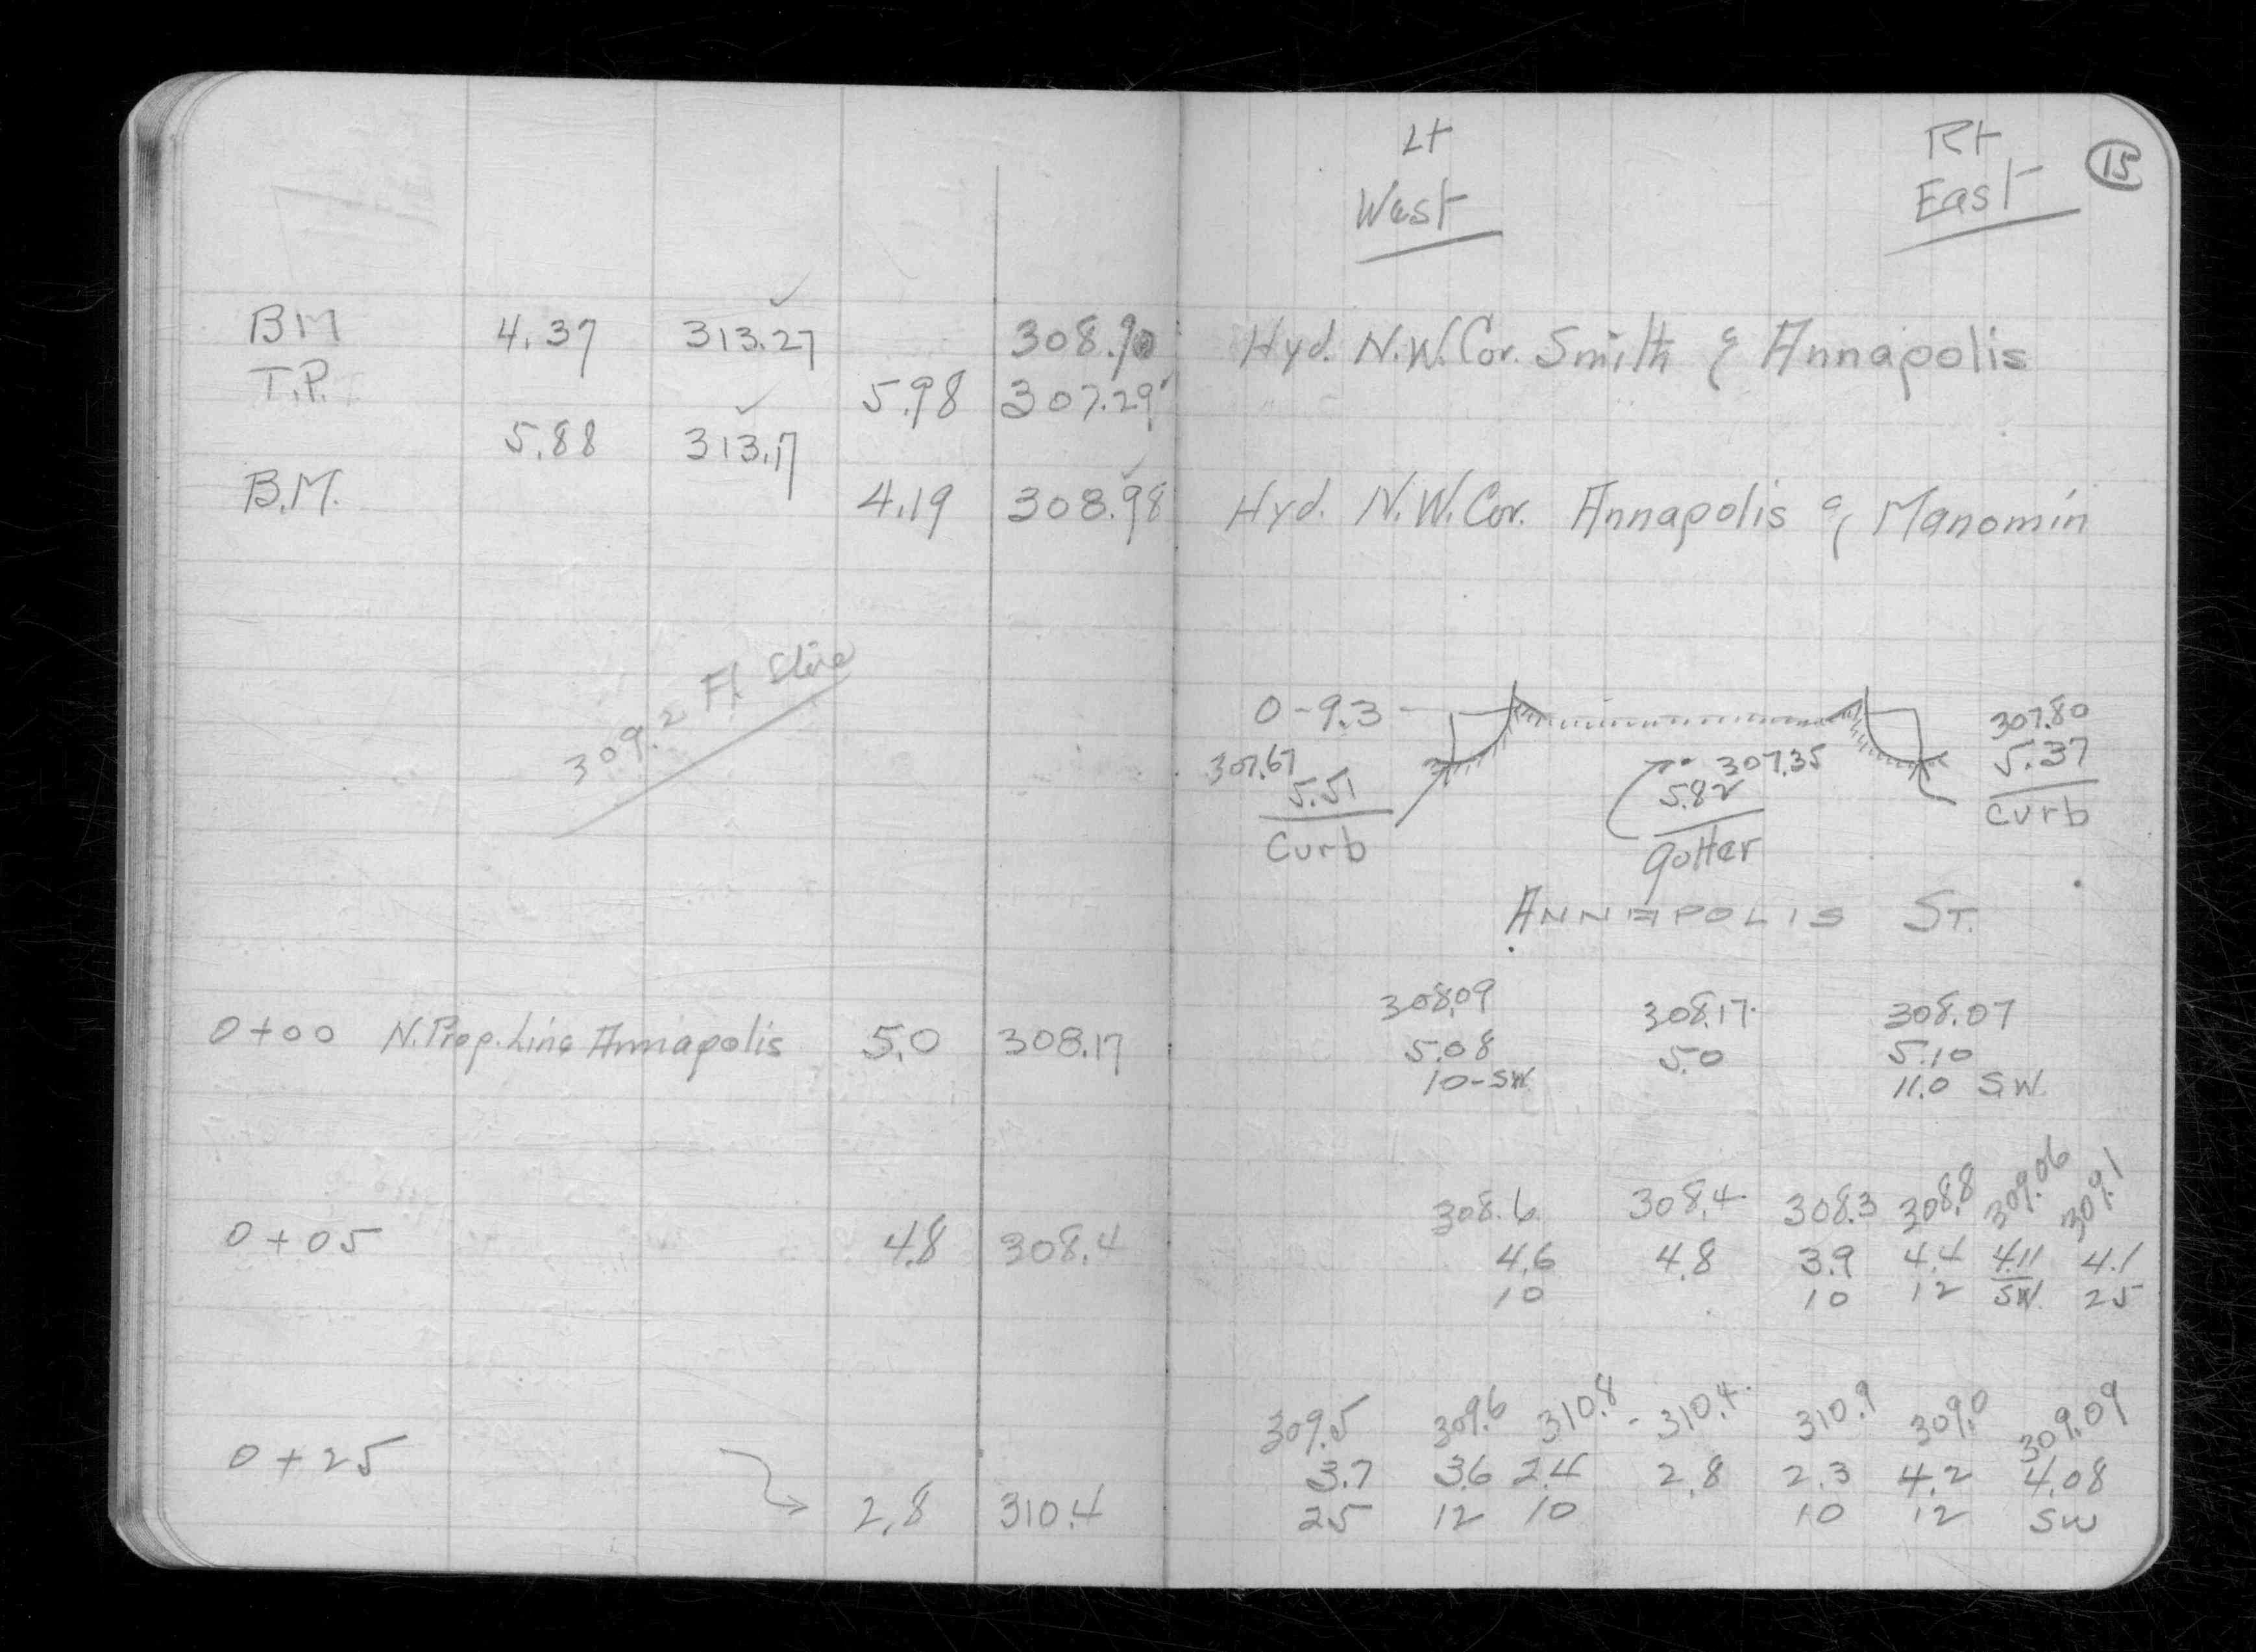 Lt Rt 15
West East
BM 4.37 313.27 308.90 Hyd. N.W. Cor. Smith & Annapolis
T.P. 5.98 307.29
5.88 313.17
B.M. 4.19 308.98 Hyd. N.W. Cor. Annapolis & Manomin
309.2 Fl.
0-9.3 307.80
307.67 307.35 5.37
5.51 5.82 curb
Curb gutter
ANNAPOLIS ST.
308.09 308.17 308.07
0+00 N. Prop. Line Annapolis 5.0 308.17 5.08 5.0 5.10
10-SW. 11.0 SW.
308.6 308.4 308.3 308.8 309.06 309.1
0+05 4.8 308.4 4.6 4.8 3.9 4.4 4.11 4.1
10 10 12 SW. 25
309.5 309.6 310.8 310.4 310.9 309.0 309.09
0+25 3.7 3.6 2.4 2.8 2.3 4.2 4.08
2.8 310.4 25 12 10 10 12 SW